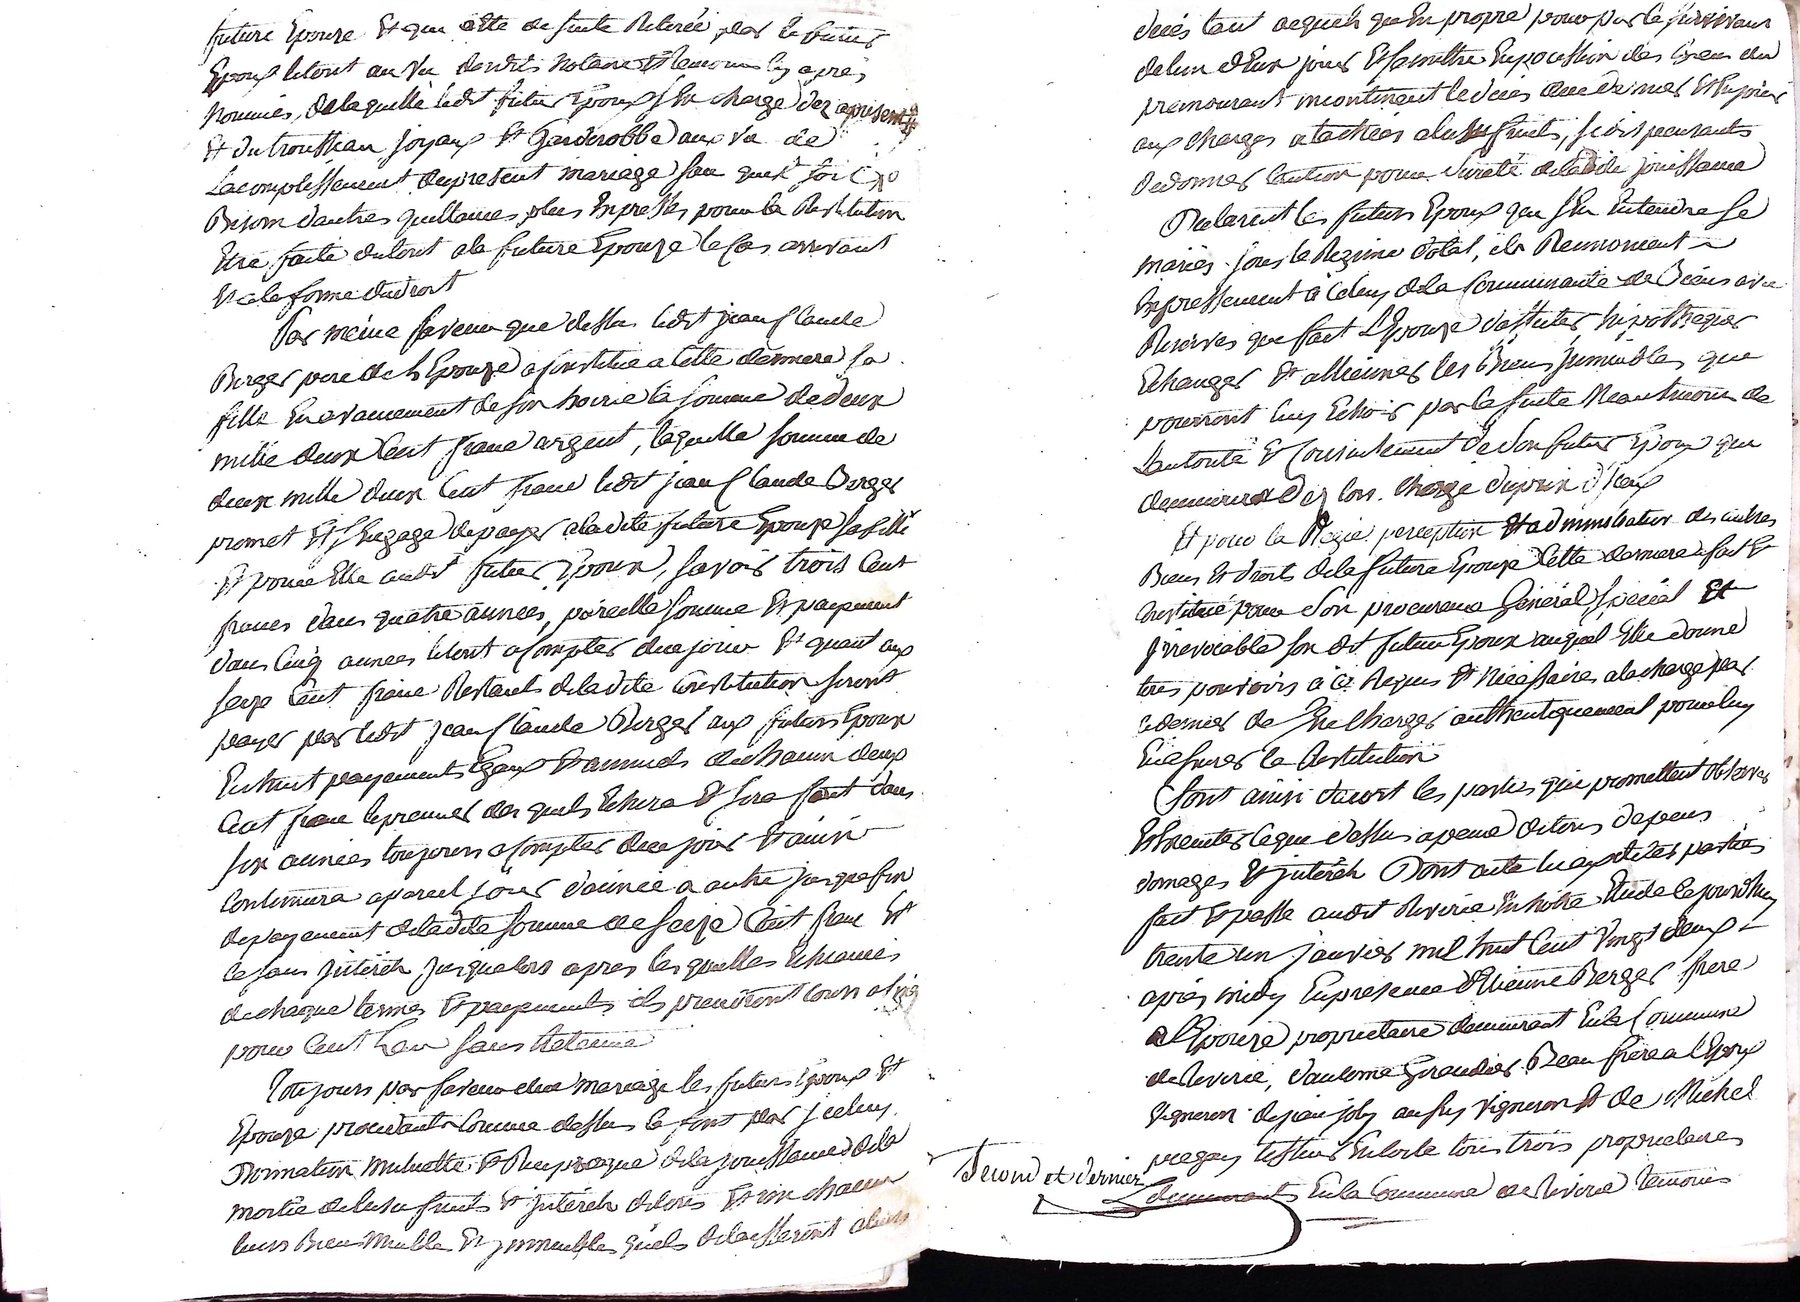 future Epouze Et qui a été de suite Retirée par le futur
Epoux le tout au Vu desdits Notaire Et temoins cy apres
Nommés, de laquelle ledit futur Epoux s'En charge dez apresent
Et du trousseau joyaux Et Garderobbe aux Vu de
Lacomplissement du present mariage san quil soit
Besoin d'autres quittances plus Expresses pour la Restitution
Etre faite du tout a la future Epouze le Cas arrivant
Et a la forme du droit
Par même faveur que dessus ledit jean Claude
Berger pere de l'Epouze a Constitué a cette derniere sa
fille En avancement de son hoirie la somme de deux
mille deux Cent franc argent, laquelle somme de
deux mille deux Cent franc ledit jean Claude Berger
promet Et s'Engage de payer a la dite future Epouze sa fille
Et pour Elle audit futur Epoux, savoir trois Cent
francs dans quatre années, pareille somme Et payement
dans Cinq années le tout a Compter de ce jour Et quant aux
seize Cent franc Restants de la dite Constitution seront
payer par ledit jean Claude Berger aux futurs Epoux
En huit payements Egaux Et annuels de chacun deux
Cent franc le premier des quels Echera Et sera fait dans
six années toujours a Compter de ce jour Et ainsi
Continuera a pareil jour d'année a autre jusque fin
de payement de la dite somme de seize Cent franc Et
ce sans jnterêts jusqualors apres les quelles Echeances
de chaque termes Et payements ils prendront Cours a Cinq
pour Cent L'an sans Retenue
Toujours par faveur du mariage les futurs Epoux Et
Epouze procedants Comme dessus se font par jceluy
Donnation Mutuelle Et Reciproque de la jouissance de la
moitié de L'usufruits Et jnterêts de tous Et un chacun
leurs Biens Meuble Et jmmeubles qu'ils delaisseront a leurs
décès tant acquets qu'En propre pour par le survivant
de l'un d'Eux jouir Et se mettre En possession des Biens du
premourant incontinent le décès de ce dernier Et
aux charges atachées a l'usufruits,
de donner Caution pour Sureté de la dite jouissance
Declarent les futurs Epoux qu s'En Entendre se
mariés sous le Regime dotal, ils Rennoncent
Expressement à Celuy de la Communauté de Biens avec
Reserves que fait L'Epouze d'affecter hipothequer
Echanger Et alliéner les Biens jmmeubles que
pourront luy Echoir par la suite Neantmoins de
L'autorité Et Consentement de son futur Epoux qui
demeurera dez lors Chargé du prix d'jceux
Et pour la Regie perception Et administration des autres
Biens Et droits de la future Epouze Cette derniere a fait Et
Constitué pour son procureur Général, spécial Et
jrrevocable son dit futur Epoux auquel Elle donne
tous pouvoirs à ce Requis Et Nécéssaires a la charge par
ce dernier de s'En Charger authentiquement pour luy
En assurer la Restitution
Sont ainsi d'acord les parties qui promettent observer
Et Executer Ce que dessus a peine de tous depens
domages Et jnterêts Dont acte lu aux dites parties
fait Et passé audit Riverie En notre Etude le jourd'huy
trente un janvier mil huit Cent Vingt deux
après midy En presence d'Etienne Berger frere
a l'Epouze propriétaire demeurant En la Commune
de Riverie, d'antoine Giraudier Beau frère a l'Epoux
Vigneron de jean joly aussy Vigneron Et de Michel
tisseur En toile tous trois propriétaires
demeurants En la Commune de Riverie temoins
Second et dernier